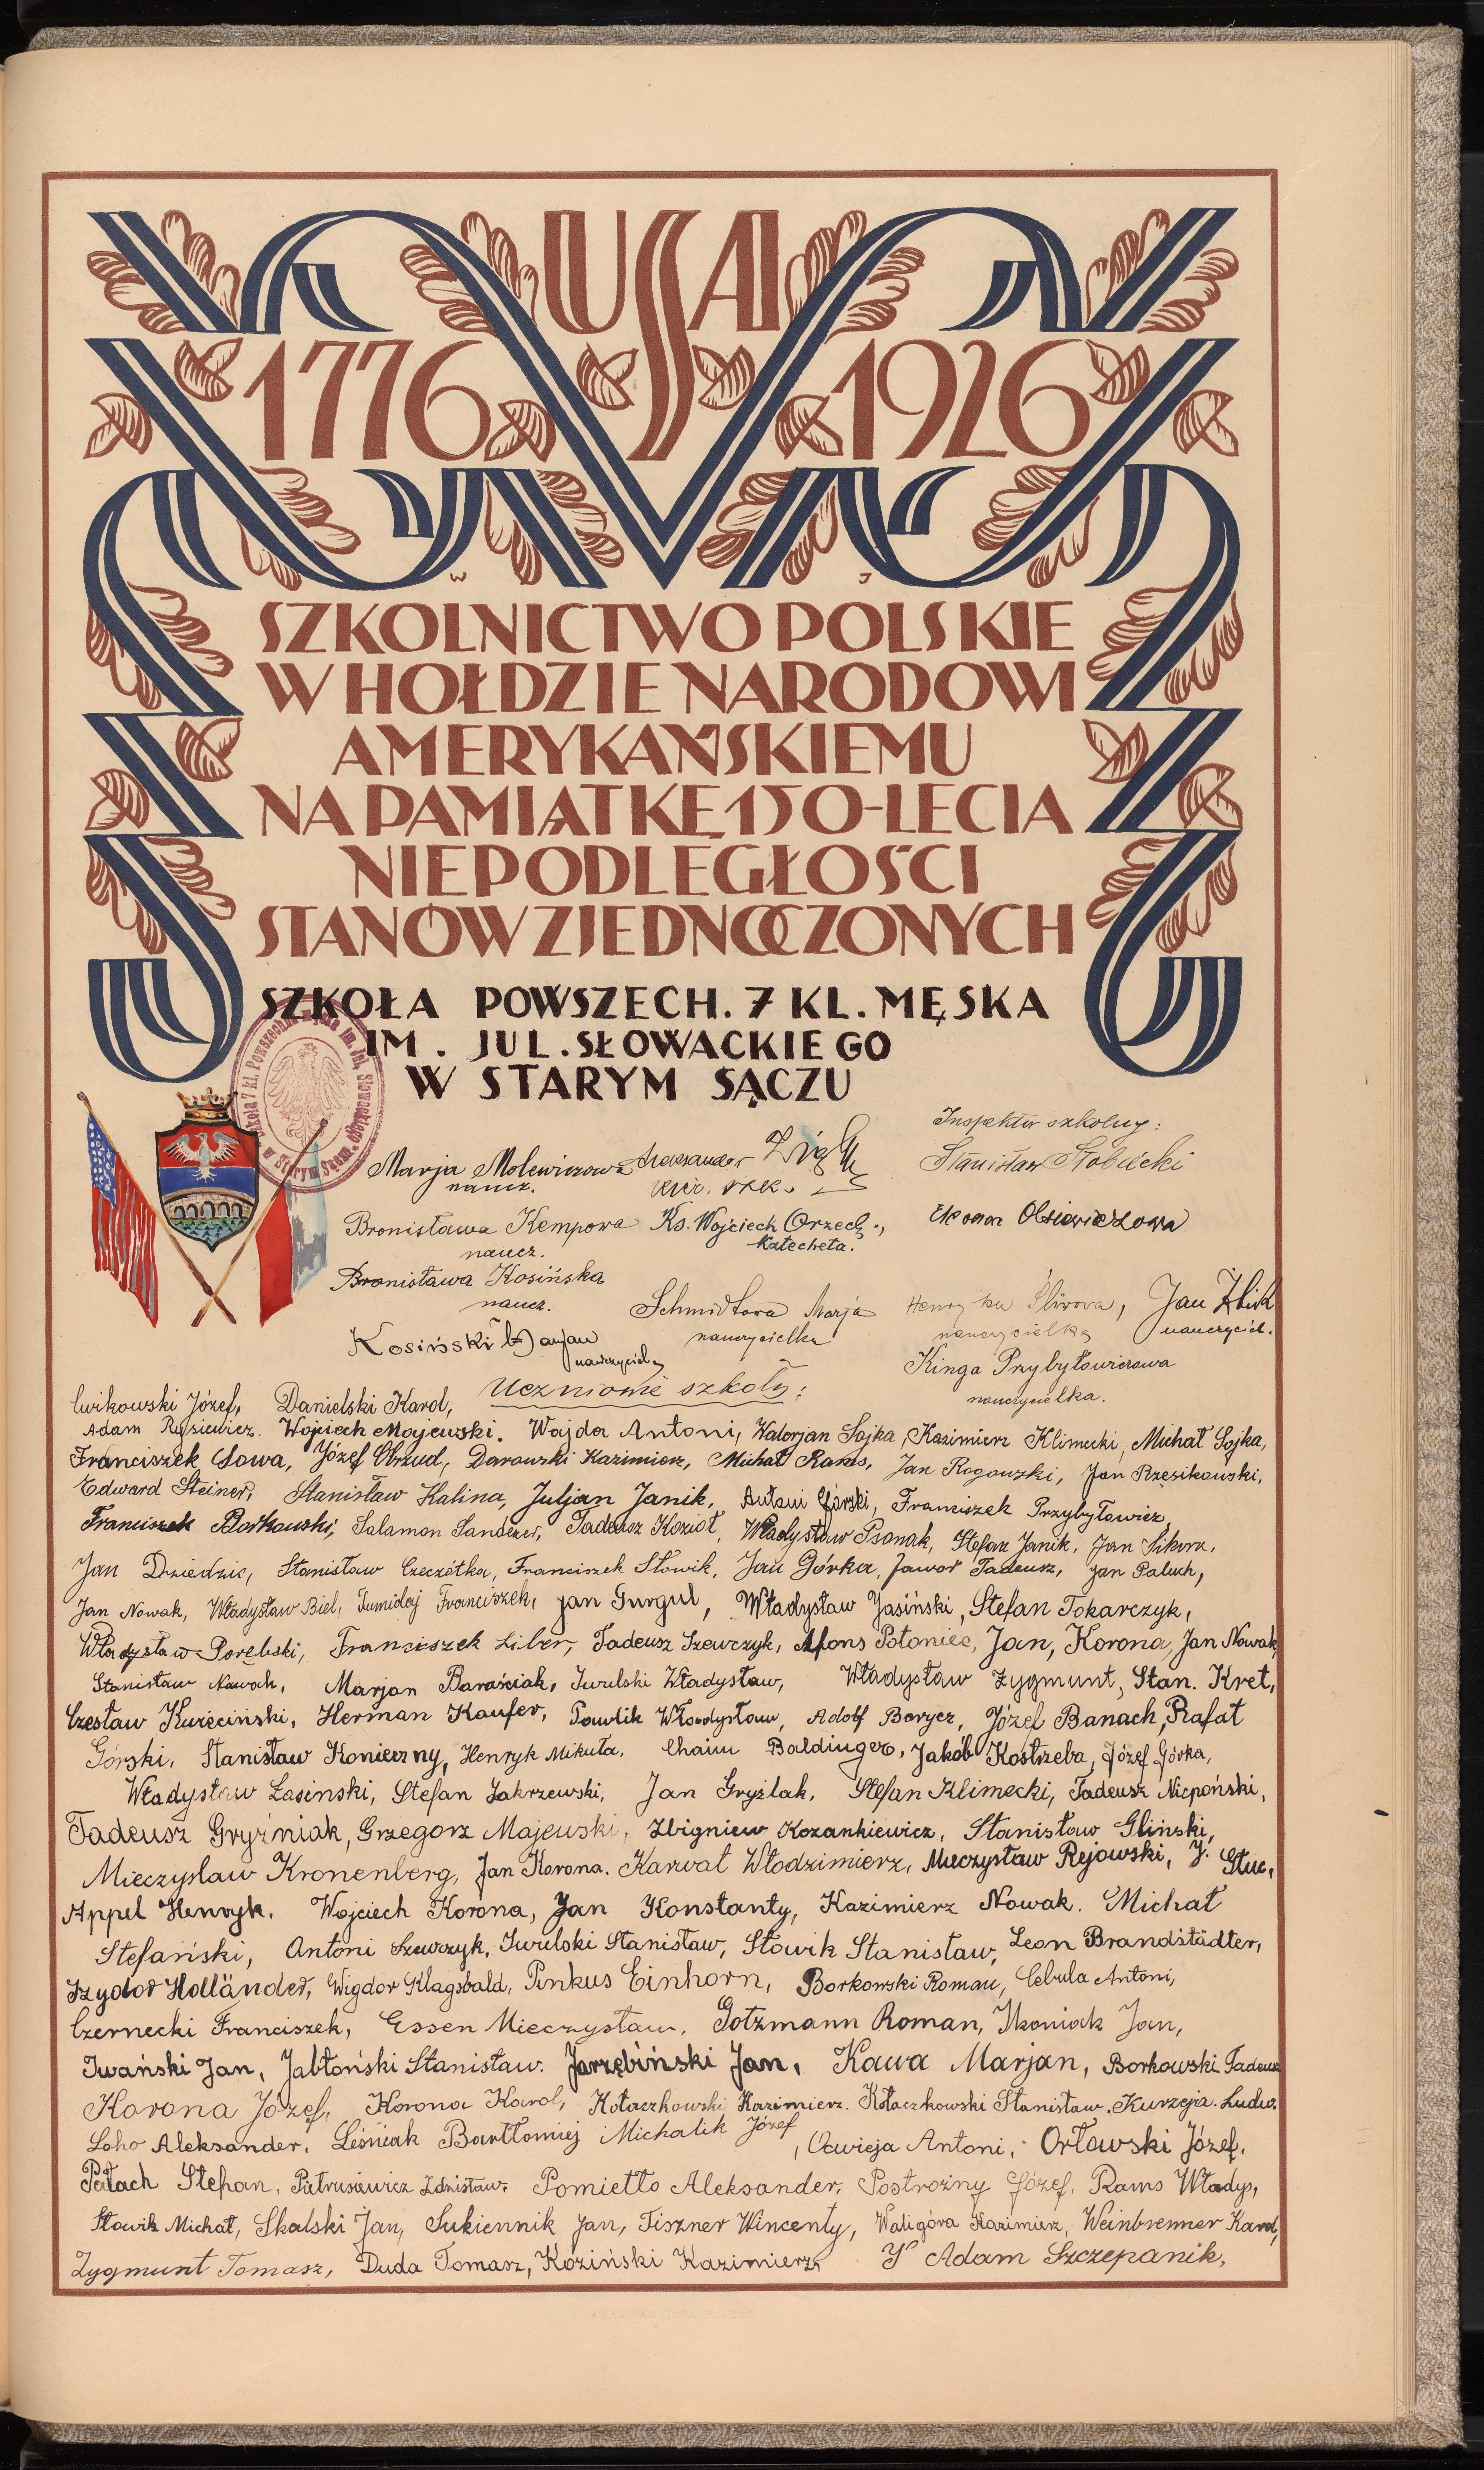 USA
1776 1926
W J
SZKOLNICTWO POLSKIE
W HOŁDZIE NARODOWI
AMERYKAŃSKIEMU
NA PAMIĄTKĘ 150-LECIA
NIEPODLEGŁOŚCI
STANÓW ZJEDNOCZONYCH
SZKOŁA POWSZECH. 7 KL. MĘSKA
IM. JUL. SŁOWACKIEGO
W STARYM SĄCZU
Inspektor szkolny:
Marja Molewiczowa Aleksander Stanisław
naucz. kier. szk.
Bronisława Kempowa Ks. Wojciech Orzech.,
naucz. Katecheta.
Bronisława Kosińska
naucz. Schmidtowa Marja Śliwowa, Jan Żbik
nauczycielka nauczycielka nauczyciel.
Kosiński Marjan
nauczyciel Kinga Przybyłowiczowa
nauczycielka.
Uczniowie szkoły:
Ćwikowski Józef, Danielski Karol,
Adam Rysiewicz. Wojciech Majewski. Wajda Antoni, Walerjan Sojka, Kazimierz Klimecki, Michał Sojka,
Franciszek Sowa, Józef Obrzud, Darowski Kazimierz, Michał Rams, Jan Rogowski, Jan Rzesikowski,
Edward Steiner, Stanisław Kalina, Juljan Janik, Antoni Górski, Franciszek Przybyłowicz,
Franciszek Borkowski, Salamon Sanderer, Tadeusz Kozioł, Władysław Psonak, Stefan Janik, Jan Sikora,
Jan Dziedzic, Stanisław Czeczótka, Franciszek Słowik, Jan Górka, Jawor Tadeusz, Jan Paluch,
Jan Nowak, Władysław Biel, Tumidaj Franciszek, Jan Gurgul, Władysław Jasiński, Stefan Tokarczyk,
Władysław Porębski, Franciszek Liber, Tadeusz Szewczyk, Alfons Połoniec, Jan, Korona, Jan Nowak,
Stanisław Nowak, Marjan Baraściak, Iwulski Władysław, Władysław Zygmunt, Stan. Kret,
Czesław Kuręciński, Herman Kaufer, Pawlik Władysław, Adolf Berycz, Józef Banach, Rafał
Górski, Stanisław Konieczny, Henryk Mikuta, Chaim Baldinger, Jakób Kostrzeba, Józef Górka,
Władysław Łasinski, Stefan Zakrzewski, Jan Gryźlak, Stefan Klimecki, Tadeusz Niepoński,
Tadeusz Gryźniak, Grzegorz Majewski, Zbigniew Kozankiewicz, Stanisław Gliński,
Mieczysław Kronenberg, Jan Korona. Karwat Włodzimierz, Mieczysław Rejowski, J. Stuc,
Appel Henryk. Wojciech Korona, Jan Konstanty, Kazimierz Nowak. Michał
Stefański, Antoni Szewczyk, Iwulski Stanisław, Słowik Stanisław, Leon Brandstädter,
Izydor Holländer, Wigdor Klagsbald, Pinkus Einhorn, Borkowski Roman, Cebula Antoni,
Czernecki Franciszek, Essen Mieczysław, Gotzmann Roman, Ikoniak Jan,
Iwański Jan, Jabłoński Stanisław. Jarzębiński Jan, Kawa Marjan, Borkowski Tadeusz
Korona Józef, Korona Karol, Kołaczkowski Kazimierz. Kołaczkowski Stanisław. Kurzeja. Ludw.
Loho Aleksander, Leśniak Bartłomiej Michalik Józef, Oćwieja Antoni, Orławski Józef,
Pałach Stefan, Pietrusiewicz Zdzisław, Pomietło Aleksander, Postrożny Józef, Rams Władys,
Słowik Michał, Skalski Jan, Sukiennik Jan, Tiszner Wincenty, Waligóra Kazimierz, Weinbrenner Karol,
Zygmunt Tomasz, Duda Tomasz, Koziński Kazimierz, Adam Szczepanik,